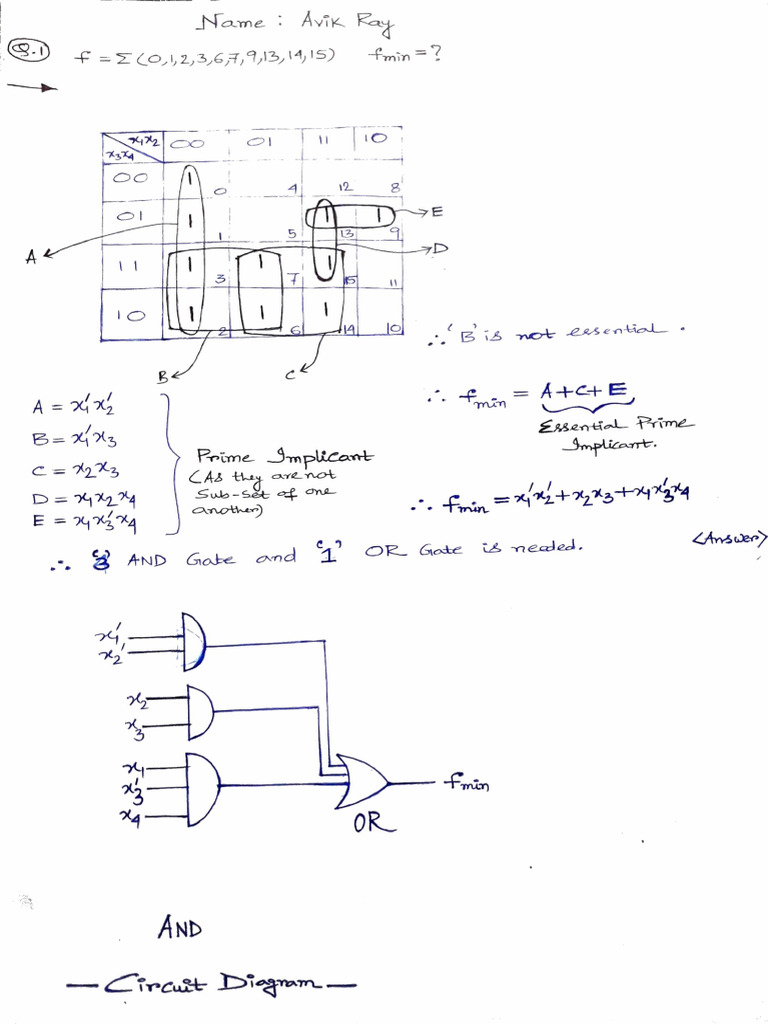 Name : Avik Ray
Q.1 f = Σ(0,1,2,3,6,7,9,13,14,15) fmin = ?
x₁x₂ 00 01 11 10
x₃x₄
00 1 0 4 12 8
01 1 1 5 1 13 1 9 E
A 11 1 3 1 7 1 15 11 D
10 1 2 1 6 1 14 10
B C
∴ 'B' is not essential.
A = x₁'x₂'
B = x₁'x₃
C = x₂x₃
D = x₁x₂x₄
E = x₁x₃'x₄
Prime Implicant
(As they are not
Sub-set of one
another)
∴ fmin = A+C+E
Essential Prime
Implicant.
∴ fmin = x₁'x₂'+x₂x₃+x₁x₃'x₄
<Answer>
∴ '3' AND Gate and '1' OR Gate is needed.
x₁'
x₂'
x₂
x₃
x₁
x₃'
x₄
fmin
OR
AND
— Circuit Diagram —